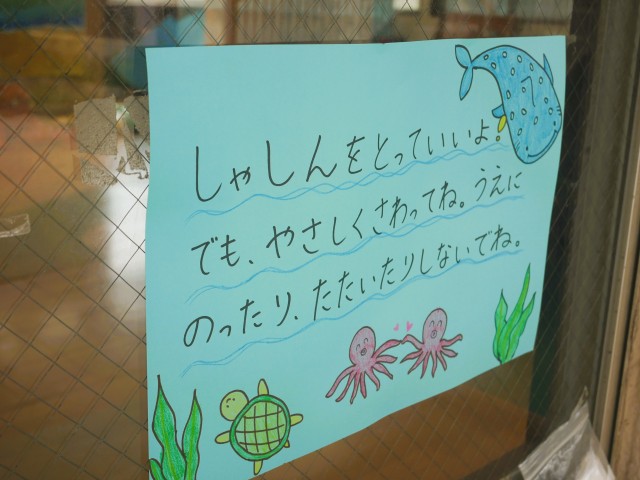 しゃしんをとっていいよ。
でも、やさしくさわってね。うえに
のったり、たたいたりしないでね。